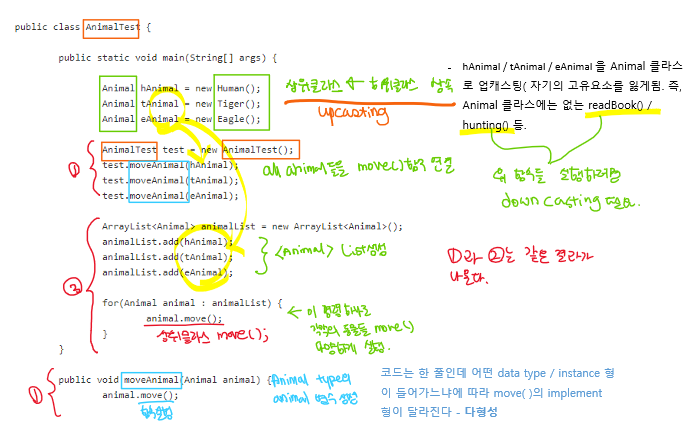 public class AnimalTest {
public static void main(String[] args) {
Animal hAnimal = new Human();
Animal tAnimal = new Tiger();
Animal eAnimal = new Eagle();
상위클래스 ← 하위클래스 상속
upcasting
- hAnimal / tAnimal / eAnimal 을 Animal 클라스
로 업캐스팅( 자기의 고유요소를 잃게됨. 즉,
Animal 클라스에는 없는 readBook() /
hunting() 등.
위 함수를 실행하려면
down casting 필요.
①
AnimalTest test = new AnimalTest();
test.moveAnimal(hAnimal);
test.moveAnimal(tAnimal);
test.moveAnimal(eAnimal);
all animal들을 move()함수 연결
②
ArrayList<Animal> animalList = new ArrayList<Animal>();
animalList.add(hAnimal);
animalList.add(tAnimal);
animalList.add(eAnimal);
<Animal> list생성
①과 ②는 같은 결과가
나온다.
for(Animal animal : animalList) {
animal.move();
}
상위클라스 move();
← 이 명령하나로
각각의 동물들 move()
다양하게 실행.
}
①
public void moveAnimal(Animal animal) {
animal.move();
함수실행
Animal type의
animal 변수 생성
코드는 한 줄인데 어떤 data type / instance 형
이 들어가느냐에 따라 move( )의 implement
형이 달라진다 - 다형성